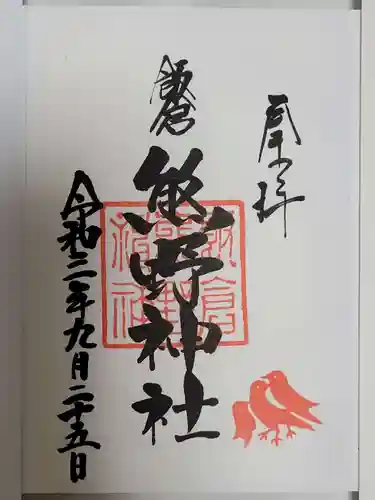 奉拝
飯倉
熊野神社
令和二年九月二十五日
飯倉熊野神社